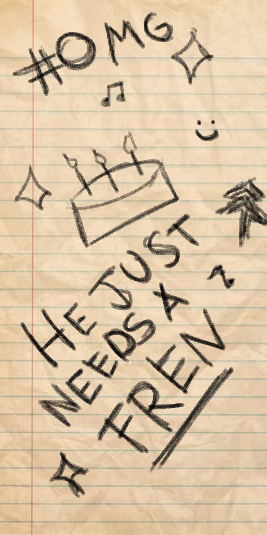 #OMG
HE JUST
NEEDS A
FREN